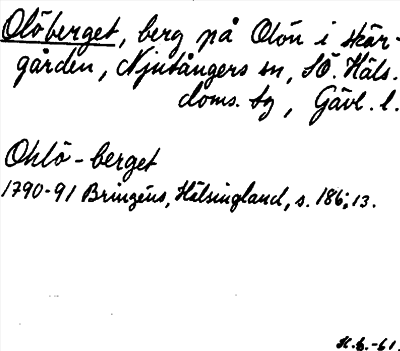 Olöberget, berg på Olön i skär-
gården, Njutångers sn, SÖ. Häls.
doms. tg, Gävl. l.
Ohlö-berget
1790-91 Bringéus, Hälsingland, s. 186; 13.
H.G.-61.